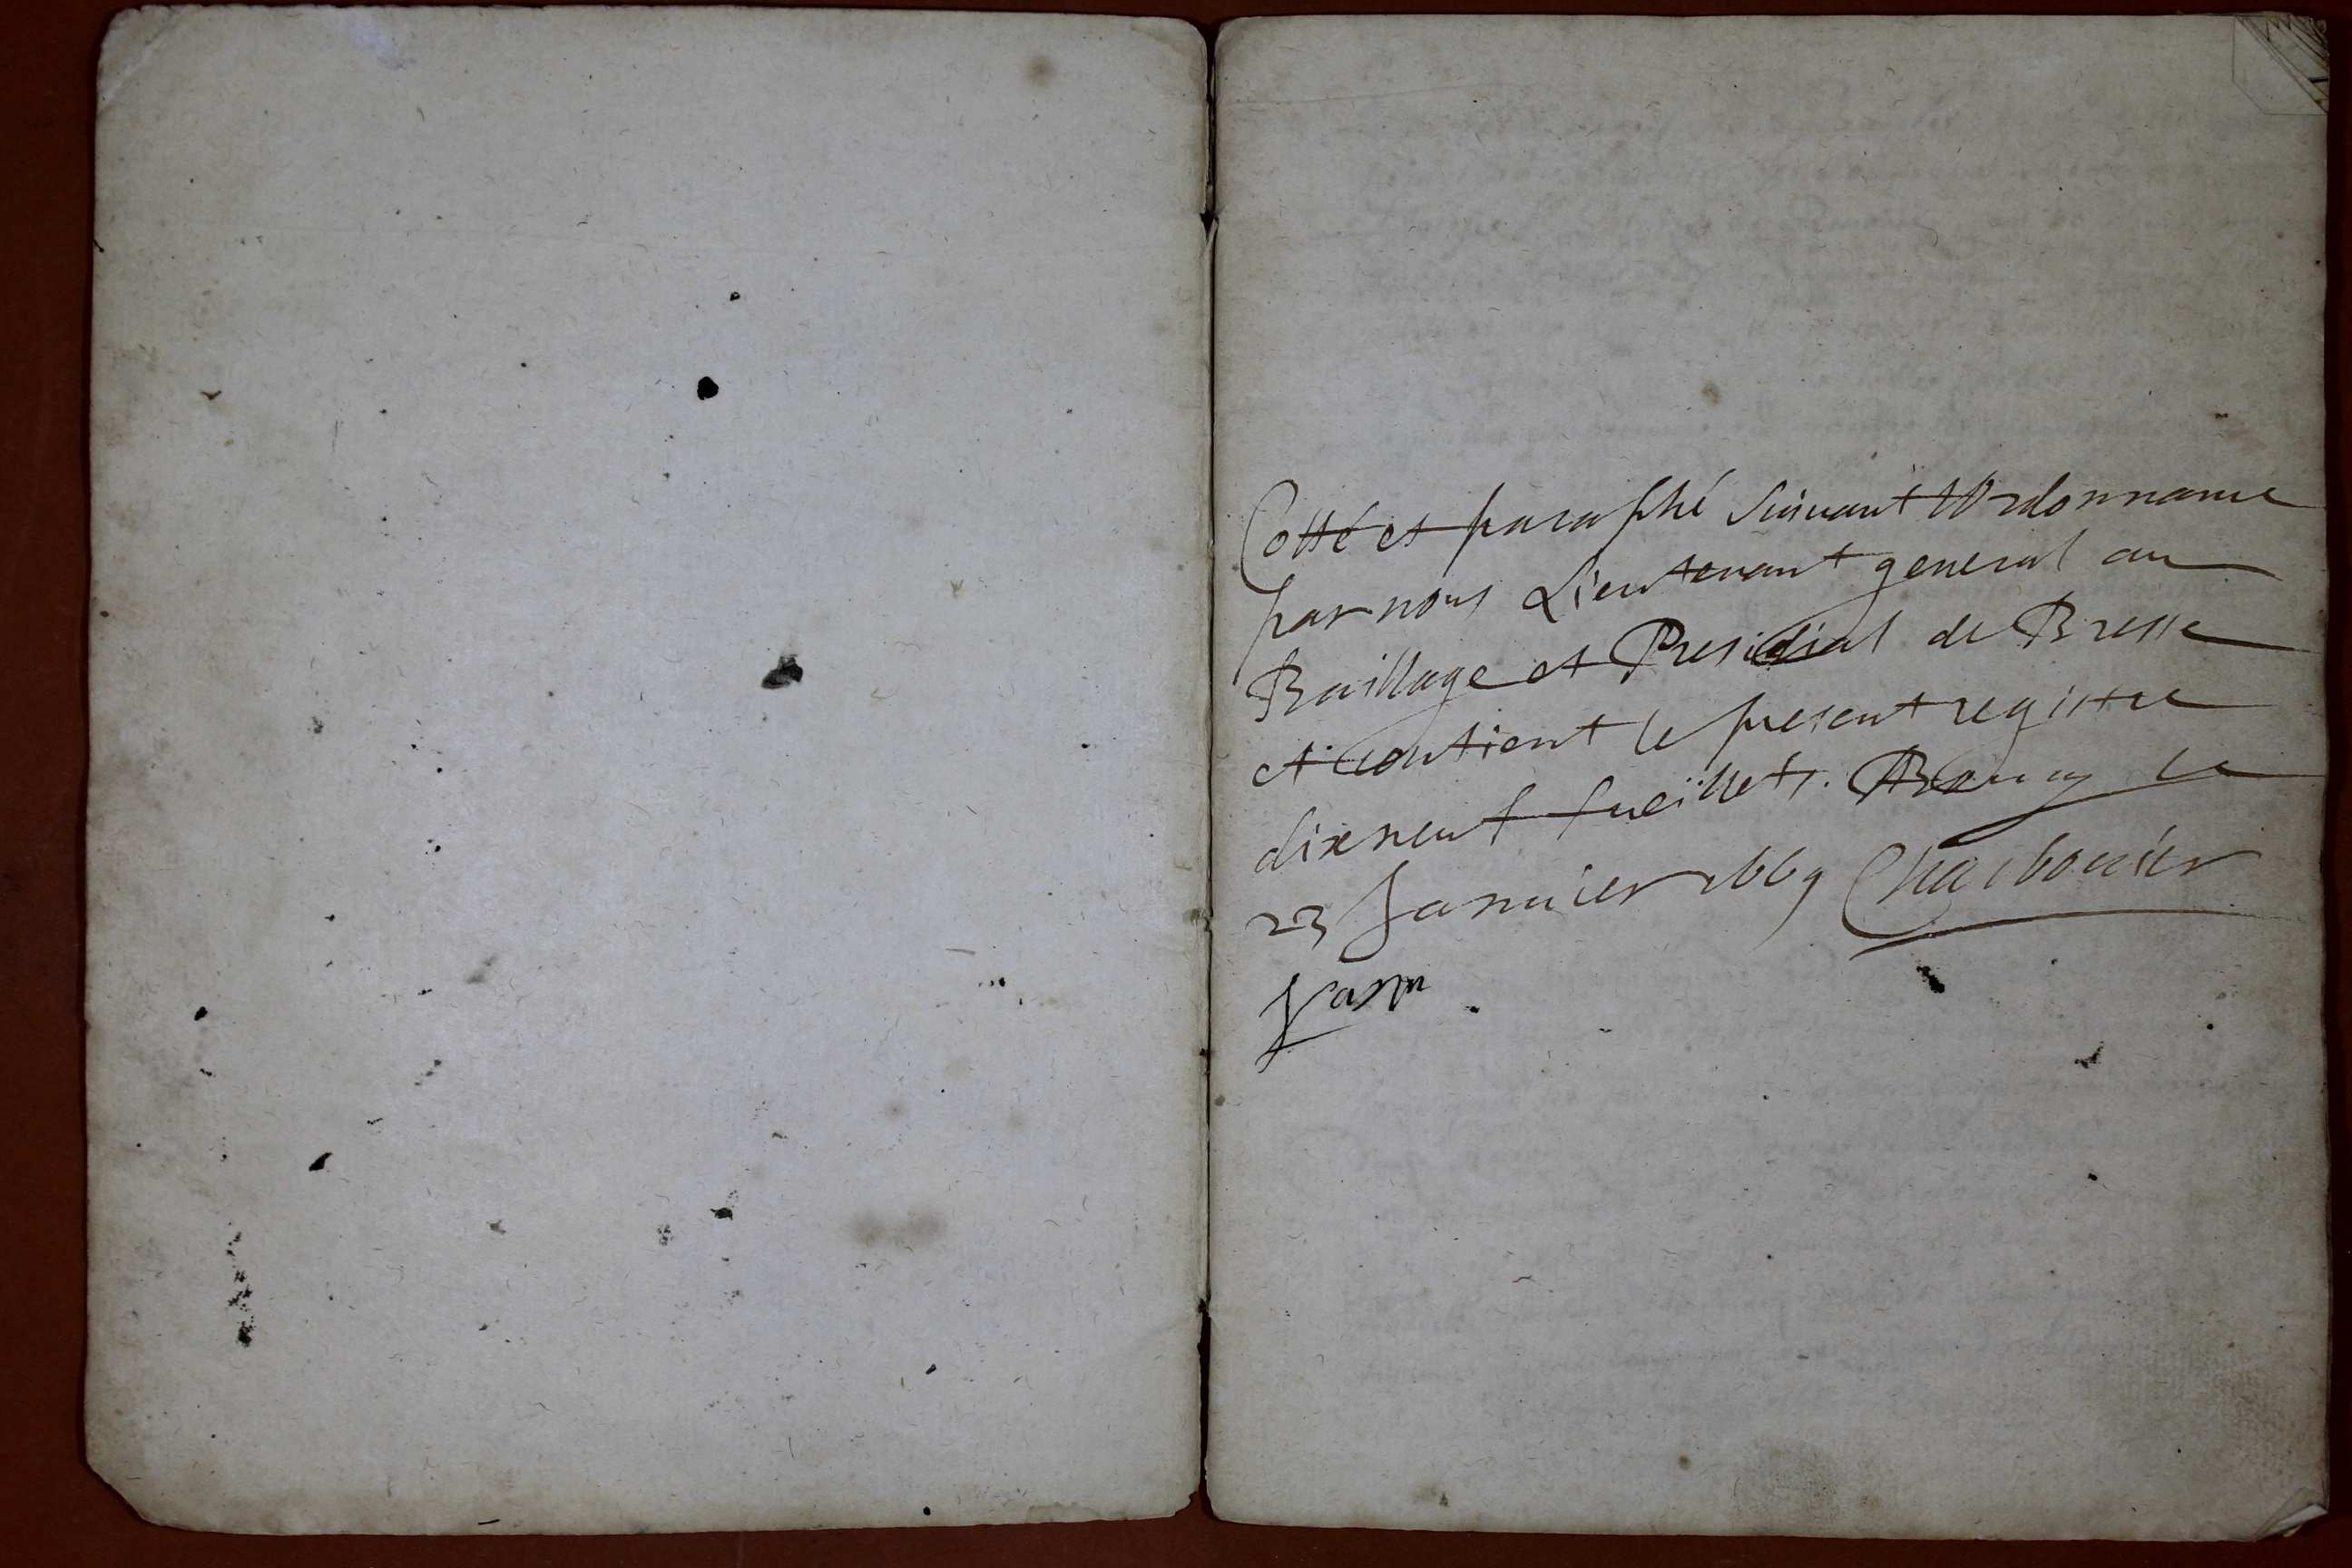 Cotté et paraphé suivant lOrdonnance
par nous Lieutenant general au
Baillage et Presidial de Bresse
et contient le present registre
dixneuf fueillets. A Bourg le
23 Januier 1669 Charbonnier